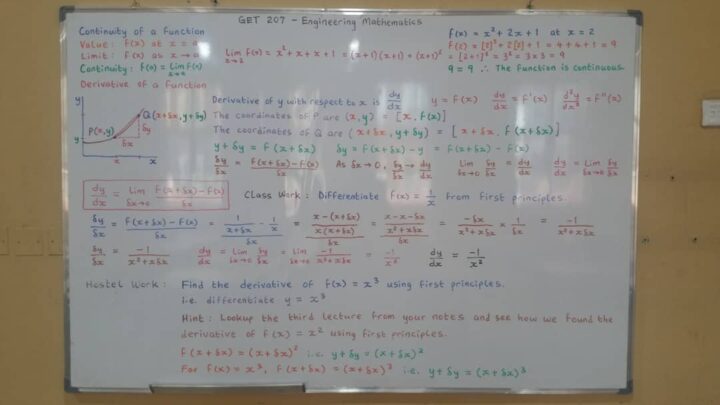 GET 207 - Engineering Mathematics
Continuity of a Function
Value: f(x) at x = a
Limit: f(x) as x → a
Continuity: f(a) = Lim f(x) x→a
f(x) = x² + 2x + 1 at x = 2
f(2) = [2]² + 2[2] + 1 = 4 + 4 + 1 = 9
Lim f(x) = x² + x + x + 1 = (x+1)(x+1) = (x+1)² x→2
= [2+1]² = 3² = 3 x 3 = 9
9 = 9 ∴ The function is continuous.
Derivative of a Function
y
P(x,y)
Q(x+δx, y+δy)
δy
δx
y
x
x
Derivative of y with respect to x is dy/dx
y = f(x) dy/dx = f'(x) d²y/dx² = f''(x)
The coordinates of P are (x,y) = [x, f(x)]
The coordinates of Q are (x+δx, y+δy) = [x+δx, f(x+δx)]
y + δy = f(x+δx) δy = f(x+δx) - y = f(x+δx) - f(x)
δy/δx = f(x+δx) - f(x)/δx As δx → 0, δy/δx → dy/dx Lim δx→0 δy/δx = dy/dx dy/dx = Lim δx→0 δy/δx
dy/dx = Lim δx→0 f(x+δx) - f(x)/δx
Class Work: Differentiate f(x) = 1/x from first principles
δy/δx = f(x+δx) - f(x)/δx = 1/x+δx - 1/x/δx = x-(x+δx)/x(x+δx)/δx = x-x-δx/x²+xδx/δx = -δx/x²+xδx x 1/δx = -1/x²+xδx
δy/δx = -1/x²+xδx dy/dx = Lim δx→0 δy/δx = Lim δx→0 -1/x²+xδx = -1/x² dy/dx = -1/x²
Hostel Work: Find the derivative of f(x) = x³ using first principles.
i.e. differentiate y = x³
Hint: Lookup the third lecture from your notes and see how we found the
derivative of f(x) = x² using first principles.
f(x+δx) = (x+δx)² i.e. y+δy = (x+δx)²
For f(x) = x³, f(x+δx) = (x+δx)³ i.e. y+δy = (x+δx)³